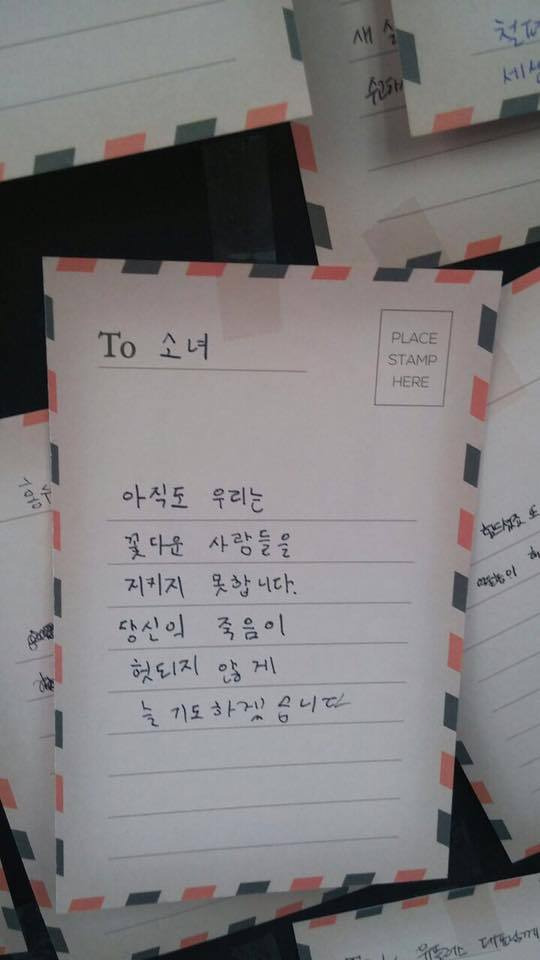 새
철
세상
To 소녀
PLACE
STAMP
HERE
아직도 우리는
꽃다운 사람들을
지키지 못합니다.
당신의 죽음이
헛되지 않게
늘 기도하겠습니다